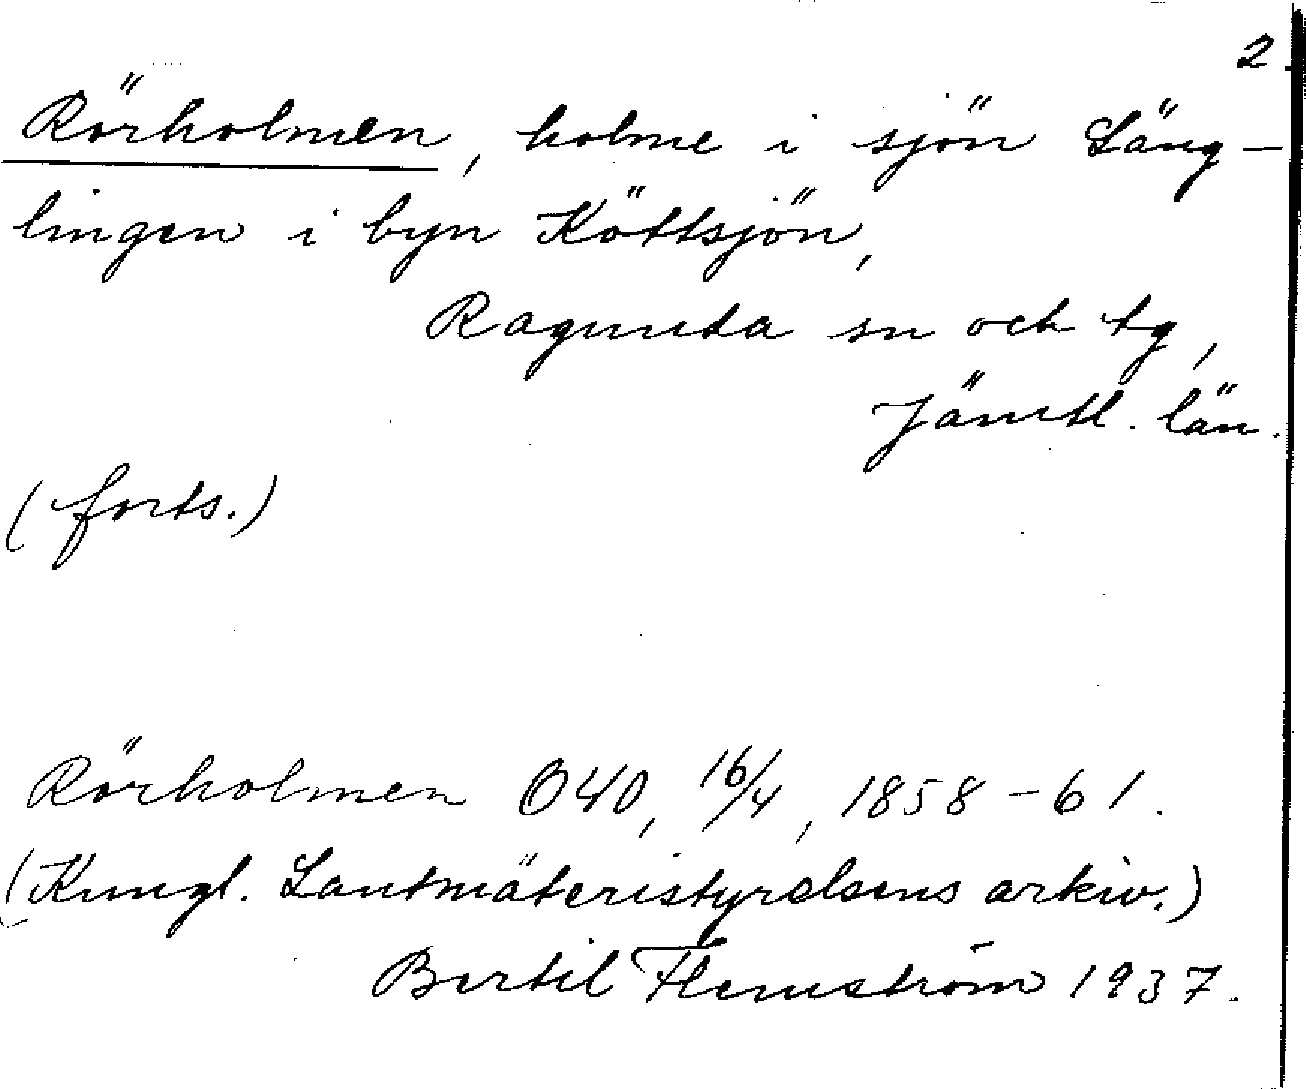 2.
Rörholmen, holme i sjön Läng-
lingen i byn Köttsjön,
Ragunda sn och tg,
Jämtl. län.
(forts.)
Rörholmen O40, 16/4, 1858-61.
(Kungl. Lantmäteristyrelsens arkiv.)
Bertil Flemström 1937.